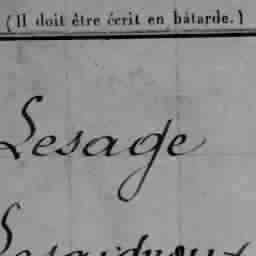 (Il doit être écrit en bâtarde.)
Lesage